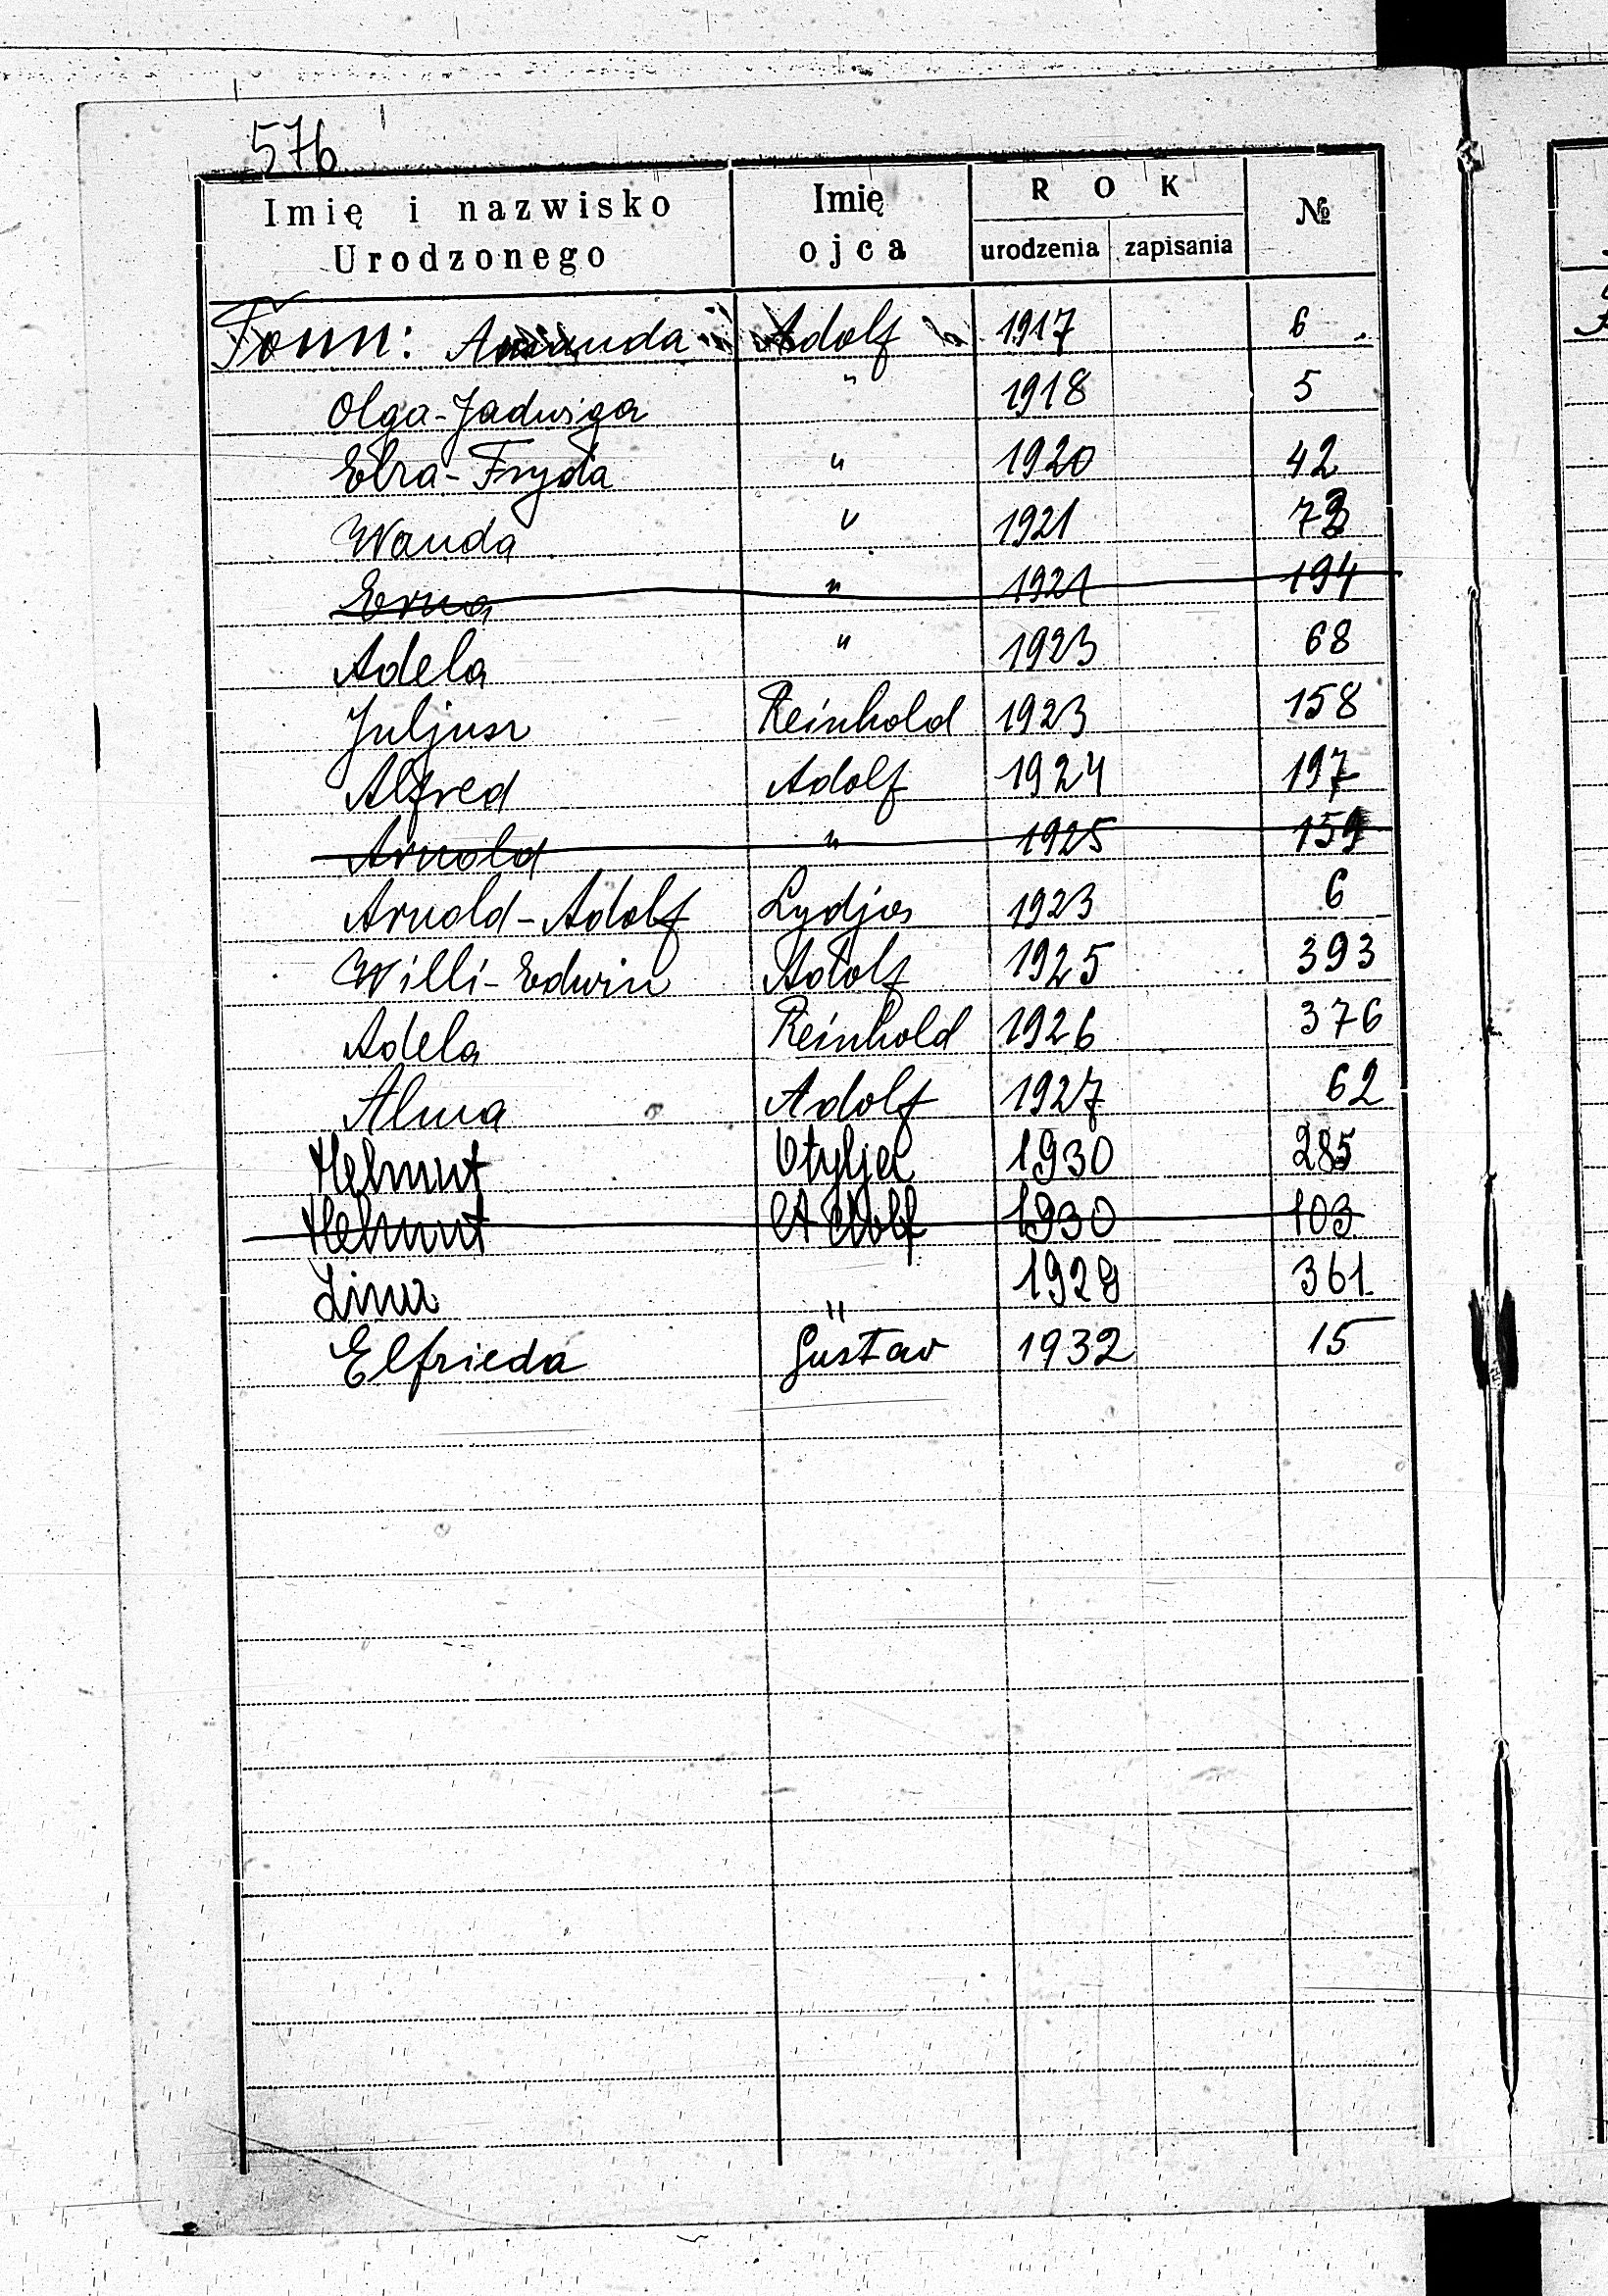 576
Imię i nazwisko Urodzonego Imię ojca ROK urodzenia zapisania №
Fönn: Amanda Adolf 1917 6
Olga-Jadwiga " 1918 5
Elza-Fryda " 1920 42
Wanda " 1921 73
Erna " 1921 194
Adela " 1923 68
Juljusz Reinhold 1923 158
Alfred Adolf 1924 197
Arnold " 1925 159
Arnold-Adolf Lydja 1923 6
Willi-Edwin Adolf 1925 393
Adela Reinhold 1926 376
Alma Adolf 1927 62
Helmut Otylja 1930 285
Helmut Adolf 1930 103
Lina " 1928 361
Elfrieda Gustav 1932 15